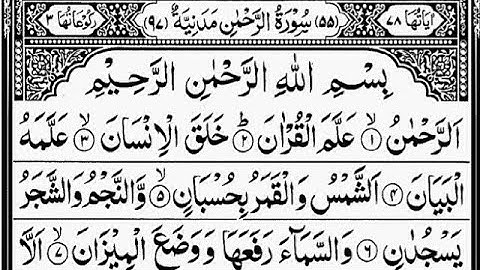 اٰیَاتُهَا ٧٨ (٥٥) سُوْرَةُ الرَّحْمٰنِ مَدَنِیَّةٌ (٩٧) رُكُوْعَاتُهَا ٣
بِسْمِ اللّٰهِ الرَّحْمٰنِ الرَّحِیْمِ
اَلرَّحْمٰنُ ۙ﴿١﴾ عَلَّمَ الْقُرْاٰنَ ؕ﴿٢﴾ خَلَقَ الْاِنْسَانَ ۙ﴿٣﴾ عَلَّمَهُ
الْبَیَانَ ﴿٤﴾ اَلشَّمْسُ وَالْقَمَرُ بِحُسْبَانٍ ۪ۙ﴿٥﴾ وَّالنَّجْمُ وَالشَّجَرُ
یَسْجُدٰنِ ﴿٦﴾ وَالسَّمَآءَ رَفَعَهَا وَوَضَعَ الْمِیْزَانَ ۙ﴿٧﴾ اَلَّا